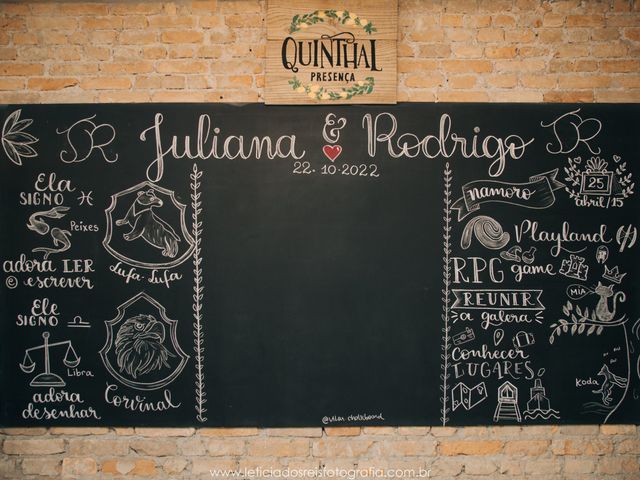 QUINTHAL
PRESENÇA
JR
Juliana & Rodrigo
22.10.2022
JR
Ela
SIGNO ♓
Peixes
adora LER
e escrever
Lufa-Lufa
Ele
SIGNO ♎
Libra
adora
desenhar
Corvinal
namoro
25
abril/15
Playland
RPG game
REUNIR
a galera
MIA
Conhecer
LUGARES
Koda
www.leticiadosreisfotografia.com.br